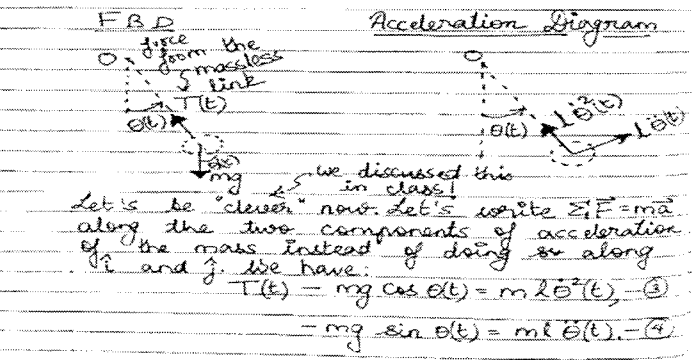 FBD
Acceleration Diagram
force
from the
massless
link
O
T(t)
θ(t)
mg
O
lθ̇²(t)
θ(t)
lθ̈(t)
we discussed this
in class!
Let's be "clever" now. Let's write ΣF⃗ = ma⃗
along the two components of acceleration
of the mass instead of doing so along
î and ĵ. We have:
T(t) - mg cos θ(t) = mlθ̇²(t), -③
- mg sin θ(t) = mlθ̈(t). -④